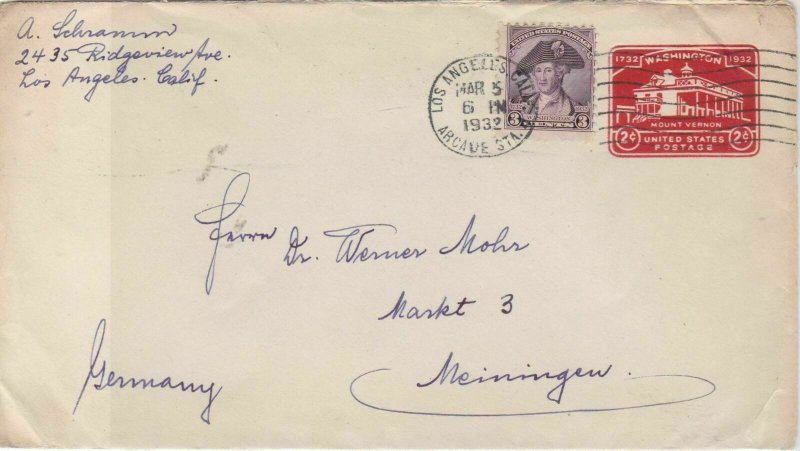 A. Schramm
2435 Ridgeview Ave.
Los Angeles. Calif.
UNITED STATES POSTAGE
WASHINGTON
3 3
LOS ANGELES, CALIF.
MAR 5
6 PM
1932
ARCADE STA.
1732 WASHINGTON 1932
MOUNT VERNON
2¢ UNITED STATES 2¢
POSTAGE
Herrn Dr. Werner Mohr
Markt 3
Meiningen.
Germany